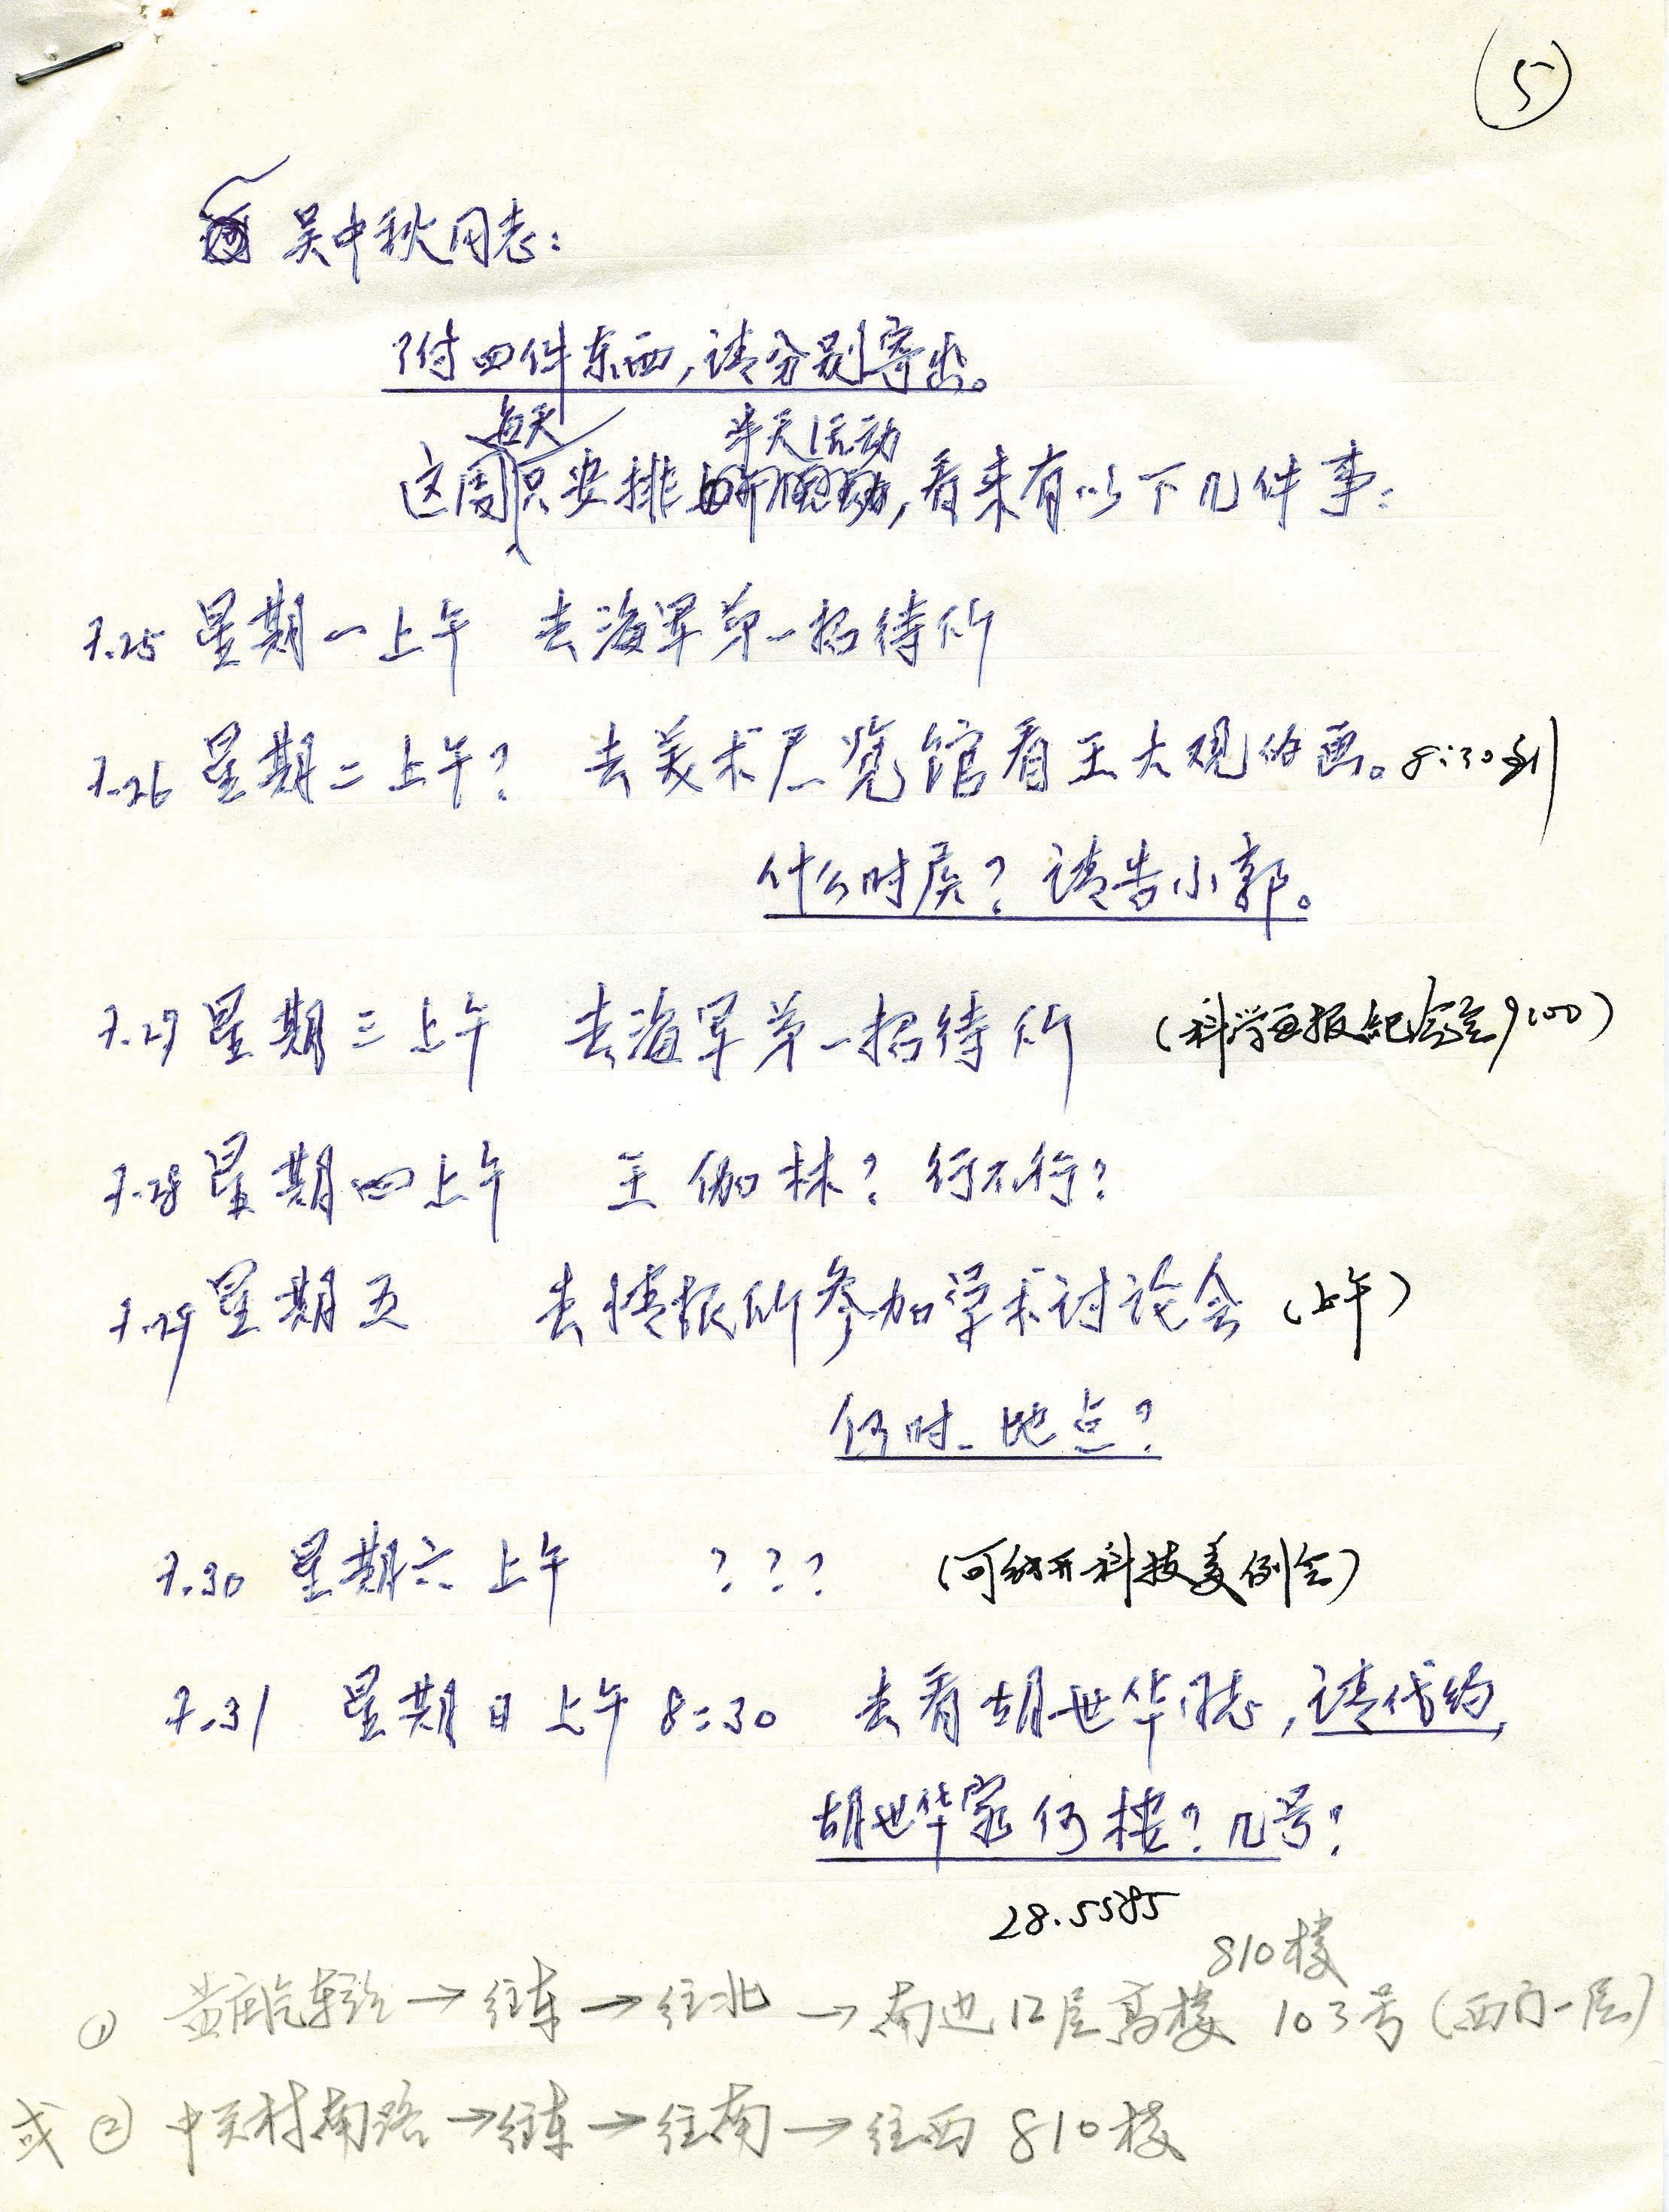 5
吴中秋同志:
附四件东西,请分别寄出。
这周每天只安排半天活动,看来有以下几件事:
7.25 星期一上午 去海军第一招待所
7.26 星期二上午? 去美术展览馆看王大观的画。8:30到
什么时候? 请告小郭。
7.27 星期三上午 去海军第一招待所 (科学画报纪念会9:00)
7.28 星期四上午 王伽林? 行不行?
7.29 星期五 去情报所参加学术讨论会 (上午)
何时、地点?
7.30 星期六上午 ??? (可能开科技美例会)
7.31 星期日上午 8:30 去看胡世华同志,请代约,
胡世华家何楼? 几号?
28.5585
810楼
① 黄庄汽车站→往东→往北→南边12层高楼 103号(西门一层)
或② 中关村南路→往东→往南→往西 810楼